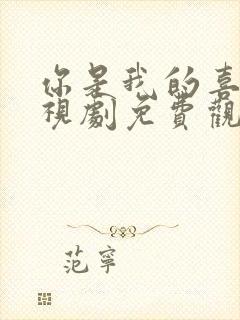 你是我的喜
視劇免費觀
范寧